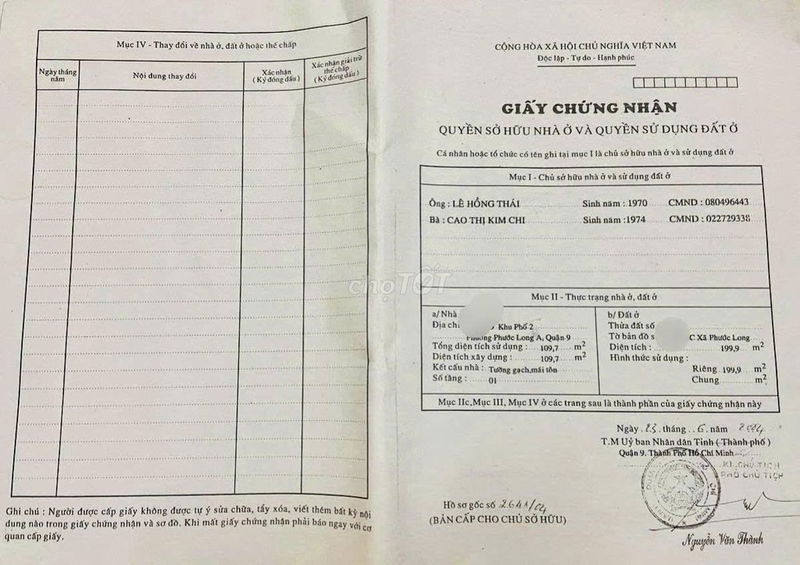 Mục IV - Thay đổi về nhà ở, đất ở hoặc thế chấp
Ngày tháng năm
Nội dung thay đổi
Xác nhận (Ký đóng dấu)
Xác nhận giải trừ thế chấp (Ký đóng dấu)
Ghi chú : Người được cấp giấy không được tự ý sửa chữa, tẩy xóa, viết thêm bất kỳ nội
dung nào trong giấy chứng nhận và sơ đồ. Khi mất giấy chứng nhận phải báo ngay với cơ
quan cấp giấy.
chợTỐT
CỘNG HÒA XÃ HỘI CHỦ NGHĨA VIỆT NAM
Độc lập - Tự do - Hạnh phúc
GIẤY CHỨNG NHẬN
QUYỀN SỞ HỮU NHÀ Ở VÀ QUYỀN SỬ DỤNG ĐẤT Ở
Cá nhân hoặc tổ chức có tên ghi tại mục I là chủ sở hữu nhà ở và sử dụng đất ở
Mục I - Chủ sở hữu nhà ở và sử dụng đất ở
Ông : LÊ HỒNG THÁI Sinh năm : 1970 CMND : 080496443
Bà : CAO THỊ KIM CHI Sinh năm : 1974 CMND : 022729338
Mục II - Thực trạng nhà ở, đất ở
a/ Nhà
Địa chỉ Khu Phố 2
Phường Phước Long A, Quận 9
Tổng diện tích sử dụng : 109,7 m2
Diện tích xây dựng : 109,7 m2
Kết cấu nhà : Tường gạch, mái tôn
Số tầng : 01
b/ Đất ở
Thửa đất số
Tờ bản đồ s C Xã Phước Long
Diện tích : 199,9 m2
Hình thức sử dụng :
Riêng 199,9 m2
Chung m2
Mục IIc, Mục III, Mục IV ở các trang sau là thành phần của giấy chứng nhận này
Ngày 23 tháng 6 năm 2004
T.M Uỷ ban Nhân dân Tỉnh (Thành phố)
Quận 9. Thành Phố Hồ Chí Minh
KT. CHỦ TỊCH
PHÓ CHỦ TỊCH
Hồ sơ gốc số 2641/04
(BẢN CẤP CHO CHỦ SỞ HỮU)
Nguyễn Văn Thành